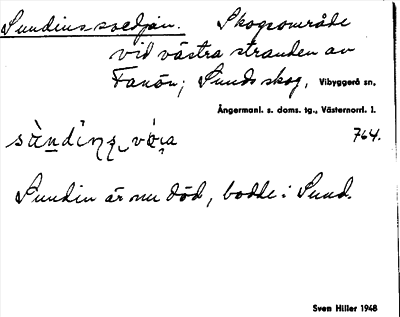 Sundinssvedjan. Skogsområde
vid västra stranden av
Fanön; Sunds skog, Vibyggerå sn,
Ångermanl. s. doms. tg., Västernorrl. l.
764.
Sundin är nu död, bodde i Sund.
Sven Hiller 1948